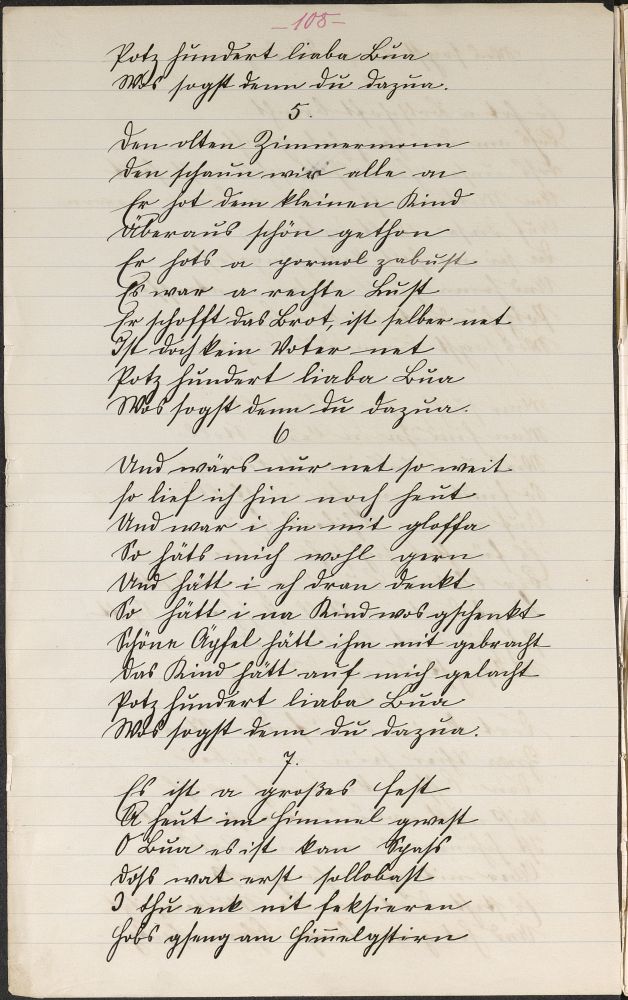 - 108 -
Potz hundert liaba Bua
Wos sogst denn du dazua.
5.
Den olten Zimmermonn
Den schaun wir alle on
Er hot dem kleinen Kind
Überaus schön gethon
Er hots a pormol zabust
Es war a rechte Lust
Er schofft das Brot, ist selber net
Ist doch kein Voter net
Potz hundert liaba Bua
Wos sogst denn du dazua.
6
Und wärs nur net so weit
so lief ich hin noch heut
Und war i hin mit gloffa
So häts mich wohl gern
Und hätt i eh dran denkt
So hätt i na Kind wos gschenkt
Schöne Äpfel hätt ihm mit gebracht
Das Kind hätt auf mich gelacht
Potz hundert liaba Bua
Wos sogst denn du dazua.
7.
Es ist a großes Fest
A heut im Himmel gwest
O Bua es ist kan Spass
Doss wat erst
I thu enk nit feksieren
Hobs gseng am Him̄elgstirn